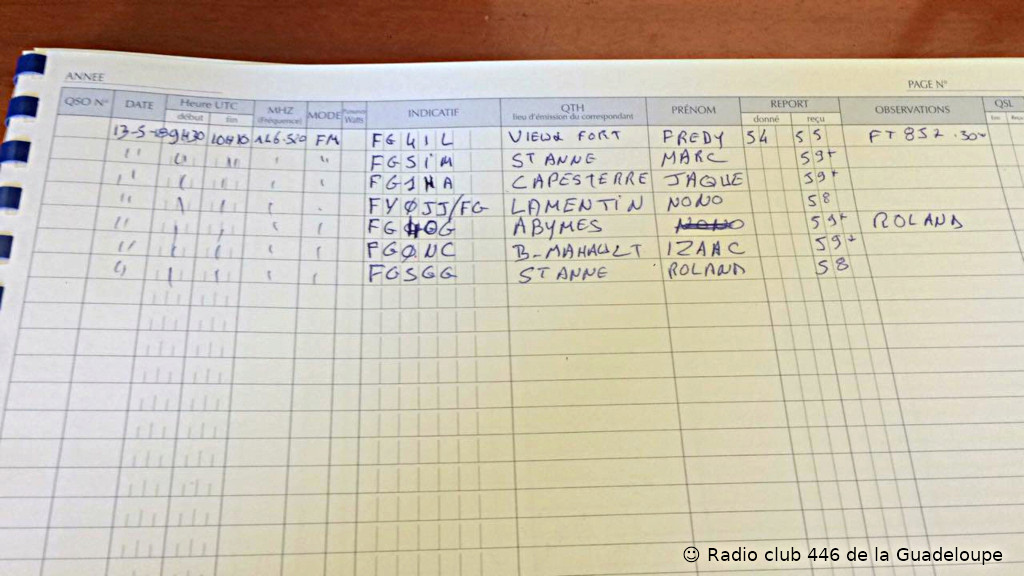 ANNEE
PAGE N°
QSO N° DATE Heure UTC début fin MHZ (Fréquence) MODE Puissance Watts INDICATIF QTH lieu d'émission du correspondant PRÉNOM REPORT donné reçu OBSERVATIONS QSL
13-5- 9H30 10H10 146.520 FM FG4IL VIEUX FORT FREDY 54 55 FT 857
" " " " " FG5IM ST ANNE MARC 59+
" " " " " FG1HA CAPESTERRE JAQUE 59+
" " " " FYØJJ/FG LAMENTIN NONO 58
" " " " " ABYMES 59+ ROLAND
" " " " " FGØNC B-MAHAULT IZAAC 59+
" " " " " FG5GG ST ANNE ROLAND 58
☺ Radio club 446 de la Guadeloupe